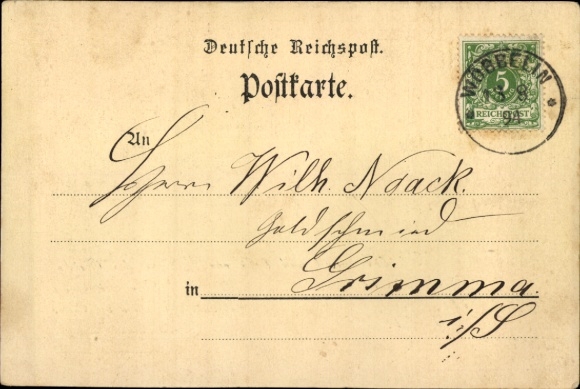 Deutsche Reichspost.
Postkarte.
WÖBBELIN
13 8
91
5
REICHSPOST
An
Herrn Wilh. Noack.
Goldschmied
in Grimma.
i/S